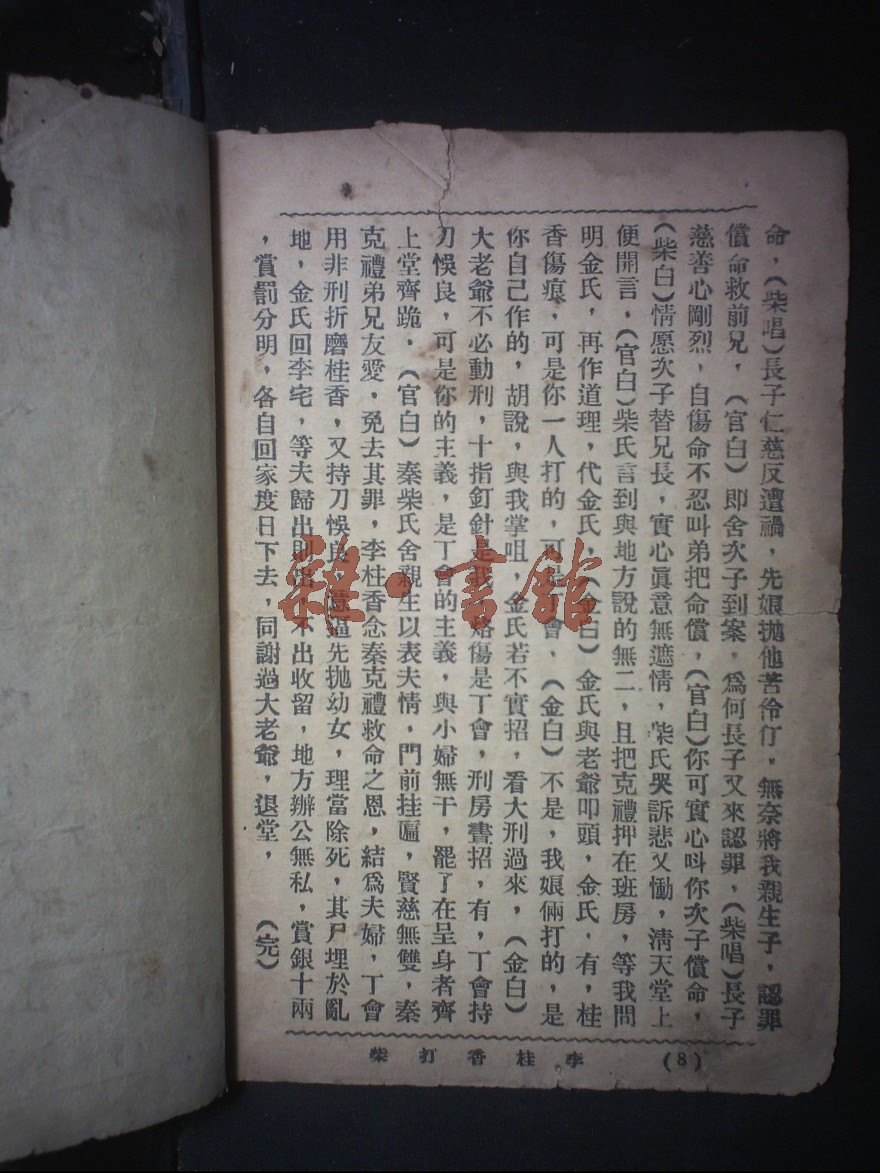 命，（柴唱）長子仁慈反遭禍，先娘拋他苦伶仃，無奈將我親生子，認罪
償命救前兄，（官白）即舍次子到案，爲何長子又來認罪，（柴唱）長子
慈善心剛烈，自傷命不忍叫弟把命償，（官白）你可實心呌你次子償命，
（柴白）情愿次子替兄長，實心眞意無遮情，柴氏哭訴悲又慟，清天堂上
便開言，（官白）柴氏言到與地方說的無二，且把克禮押在班房，等我問
明金氏，再作道理，代金氏，（金白）金氏與老爺叩頭，金氏，有，桂
香傷痕，可是你一人打的，可是丁會，（金白）不是，我娘倆打的，是
你自己作的，胡說，與我掌咀，金氏若不實招，看大刑過來，（金白）
大老爺不必動刑，十指釘針是我，烙傷是丁會，刑房畫招，有，丁會持
刀悞良，可是你的主義，是丁會的主義，與小婦無干，罷了在呈身者齊
上堂齊跪，（官白）秦柴氏舍親生以表夫情，門前挂匾，賢慈無雙，秦
克禮弟兄友愛，免去其罪，李杜香念秦克禮救命之恩，結爲夫婦，丁會
用非刑折磨桂香，又持刀悞良，意逼先拋幼女，理當除死，其尸埋於亂
地，金氏回李宅，等夫歸出則出，不出收留，地方辦公無私，賞銀十兩
，賞罰分明，各自回家度日下去，同謝過大老爺，退堂，（完）
李桂香打柴 （8）
雜·書館